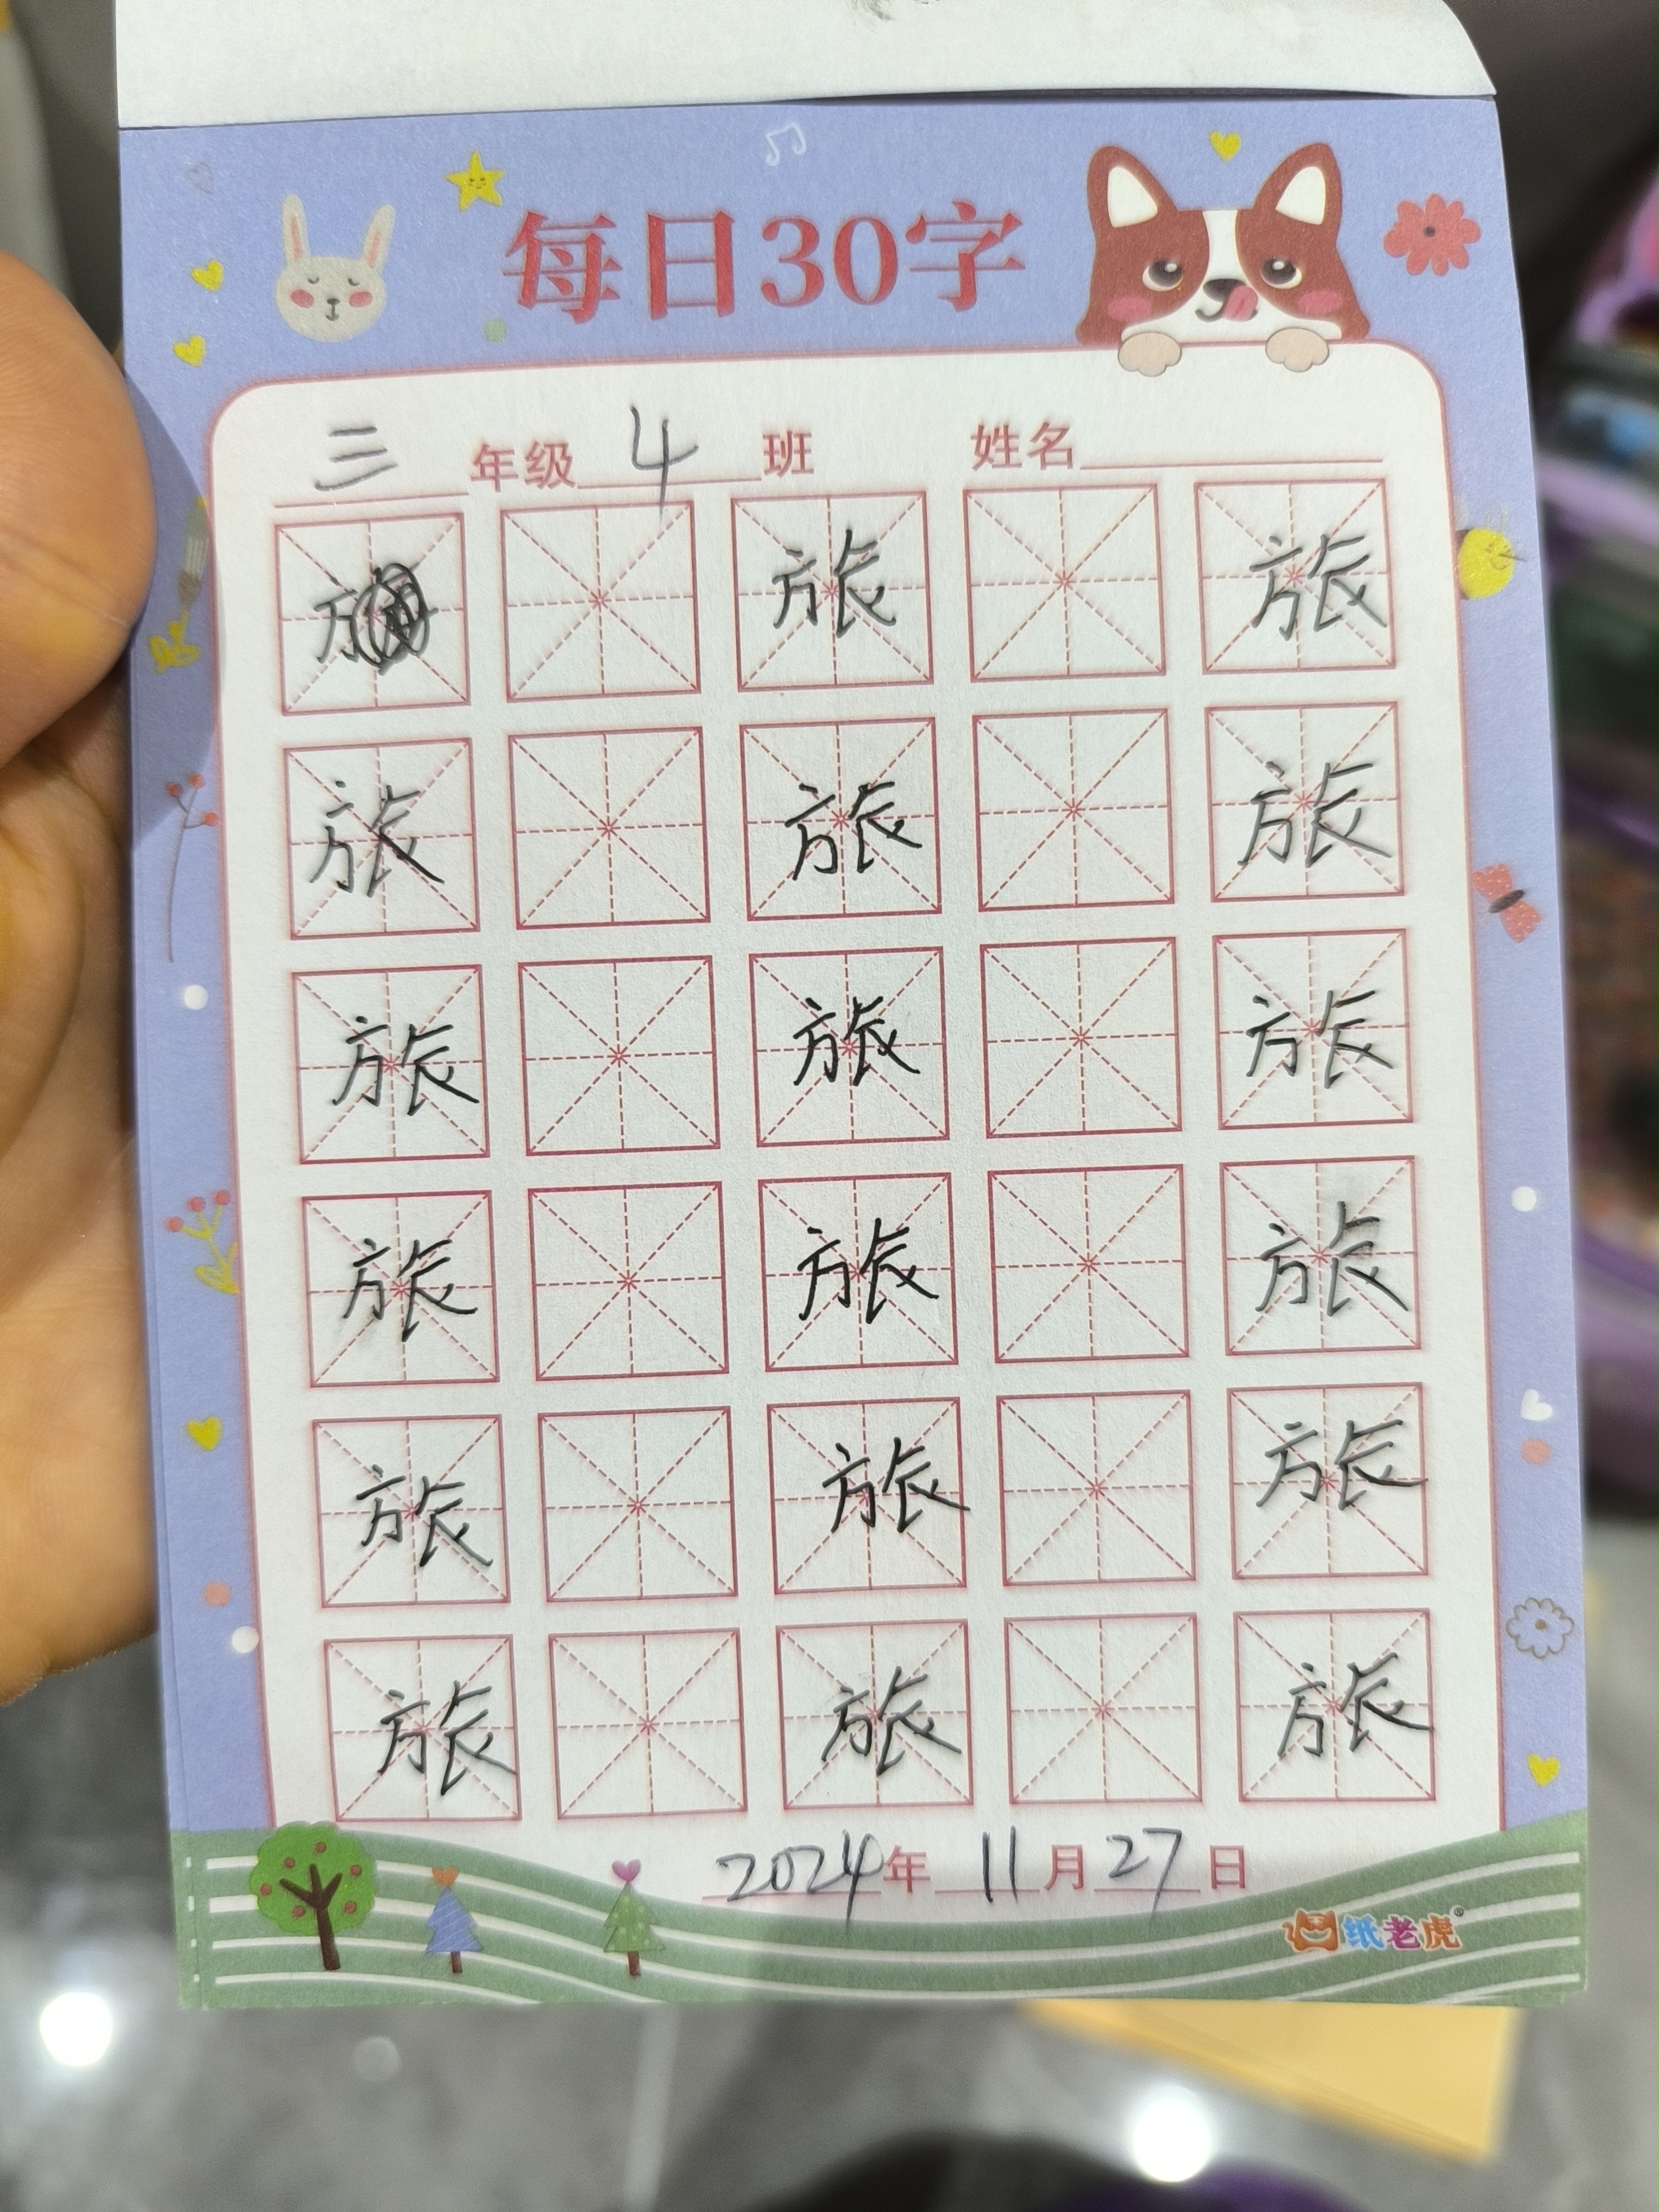 每日30字
三年级4班 姓名
旅 旅
旅 旅 旅
旅 旅 旅
旅 旅 旅
旅 旅 旅
旅 旅 旅
2024年11月27日
纸老虎